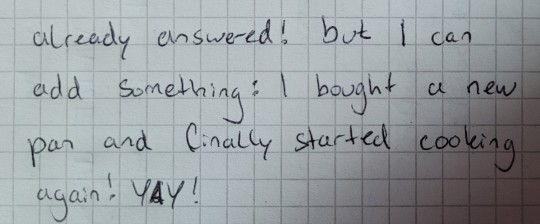 already answered! but I can
add something: I bought a new
pan and finally started cooking
again! YAY!